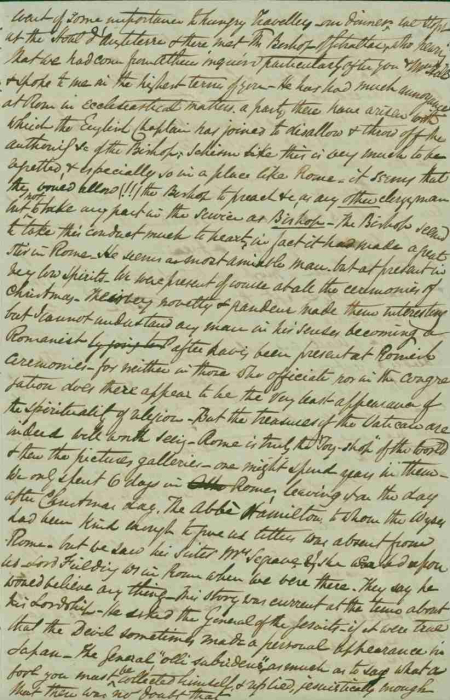 want of some importance to hungry Travellers – our dinner, we slept
at the Hotel d'Angleterre & there met The Bishop of Gibraltar, who hearing
that we had come from Athens inquired particularly after you & Mrs Hill
& spoke to me in the highest terms of you – He has had much annoyance
at Rome in ecclesiastical matters. a party there have arisen with
which the English Chaplain has joined to disallow & throw off the
authority &c of the Bishop, schism like this is very much to be
regretted, & especially so in a place like Rome – it seems that
they would allow (!!!) the Bishop to preach &c as any other clergyman
but not to take any part in the Service as Bishop – The Bishop seemed
to take this conduct much to heart, in fact it had made a great
stir in Rome – He seems a most amiable man. but at present in
very low spirits. We were present of course at all the ceremonies of
Christmas – The very novelty & grandeur made them interesting
but I cannot understand any man in his senses becoming a
Romanist after having been present at Romish
ceremonies – for neither in those who officiate nor in the congre
gation does there appear to be the very least appearance of
the spirituality of religion – But the treasures of the Vatican are
indeed well worth seeing – Rome is truly the "Toy-shop" of the World
& then the pictures galleries – one might spend years in them –
We only spent 6 days in Rome, leaving it on the day
after Christmas day. The Abbé Hamilton to whom the Wyses
had been kind enough to give us letters was absent from
Rome – but we saw his Sister Mrs & she called upon
us – Lord Fielding was in Rome when we were there. They say he
would believe any thing – this story was current at the time about
his Lordship – He asked the General of the Jesuits – if it were true
that the Devil sometimes made a personal appearance in
Japan – The General "olli subridens" as much as to say what a
fool you must be, collected himself, & replied jesuitically enough
that there was no doubt that